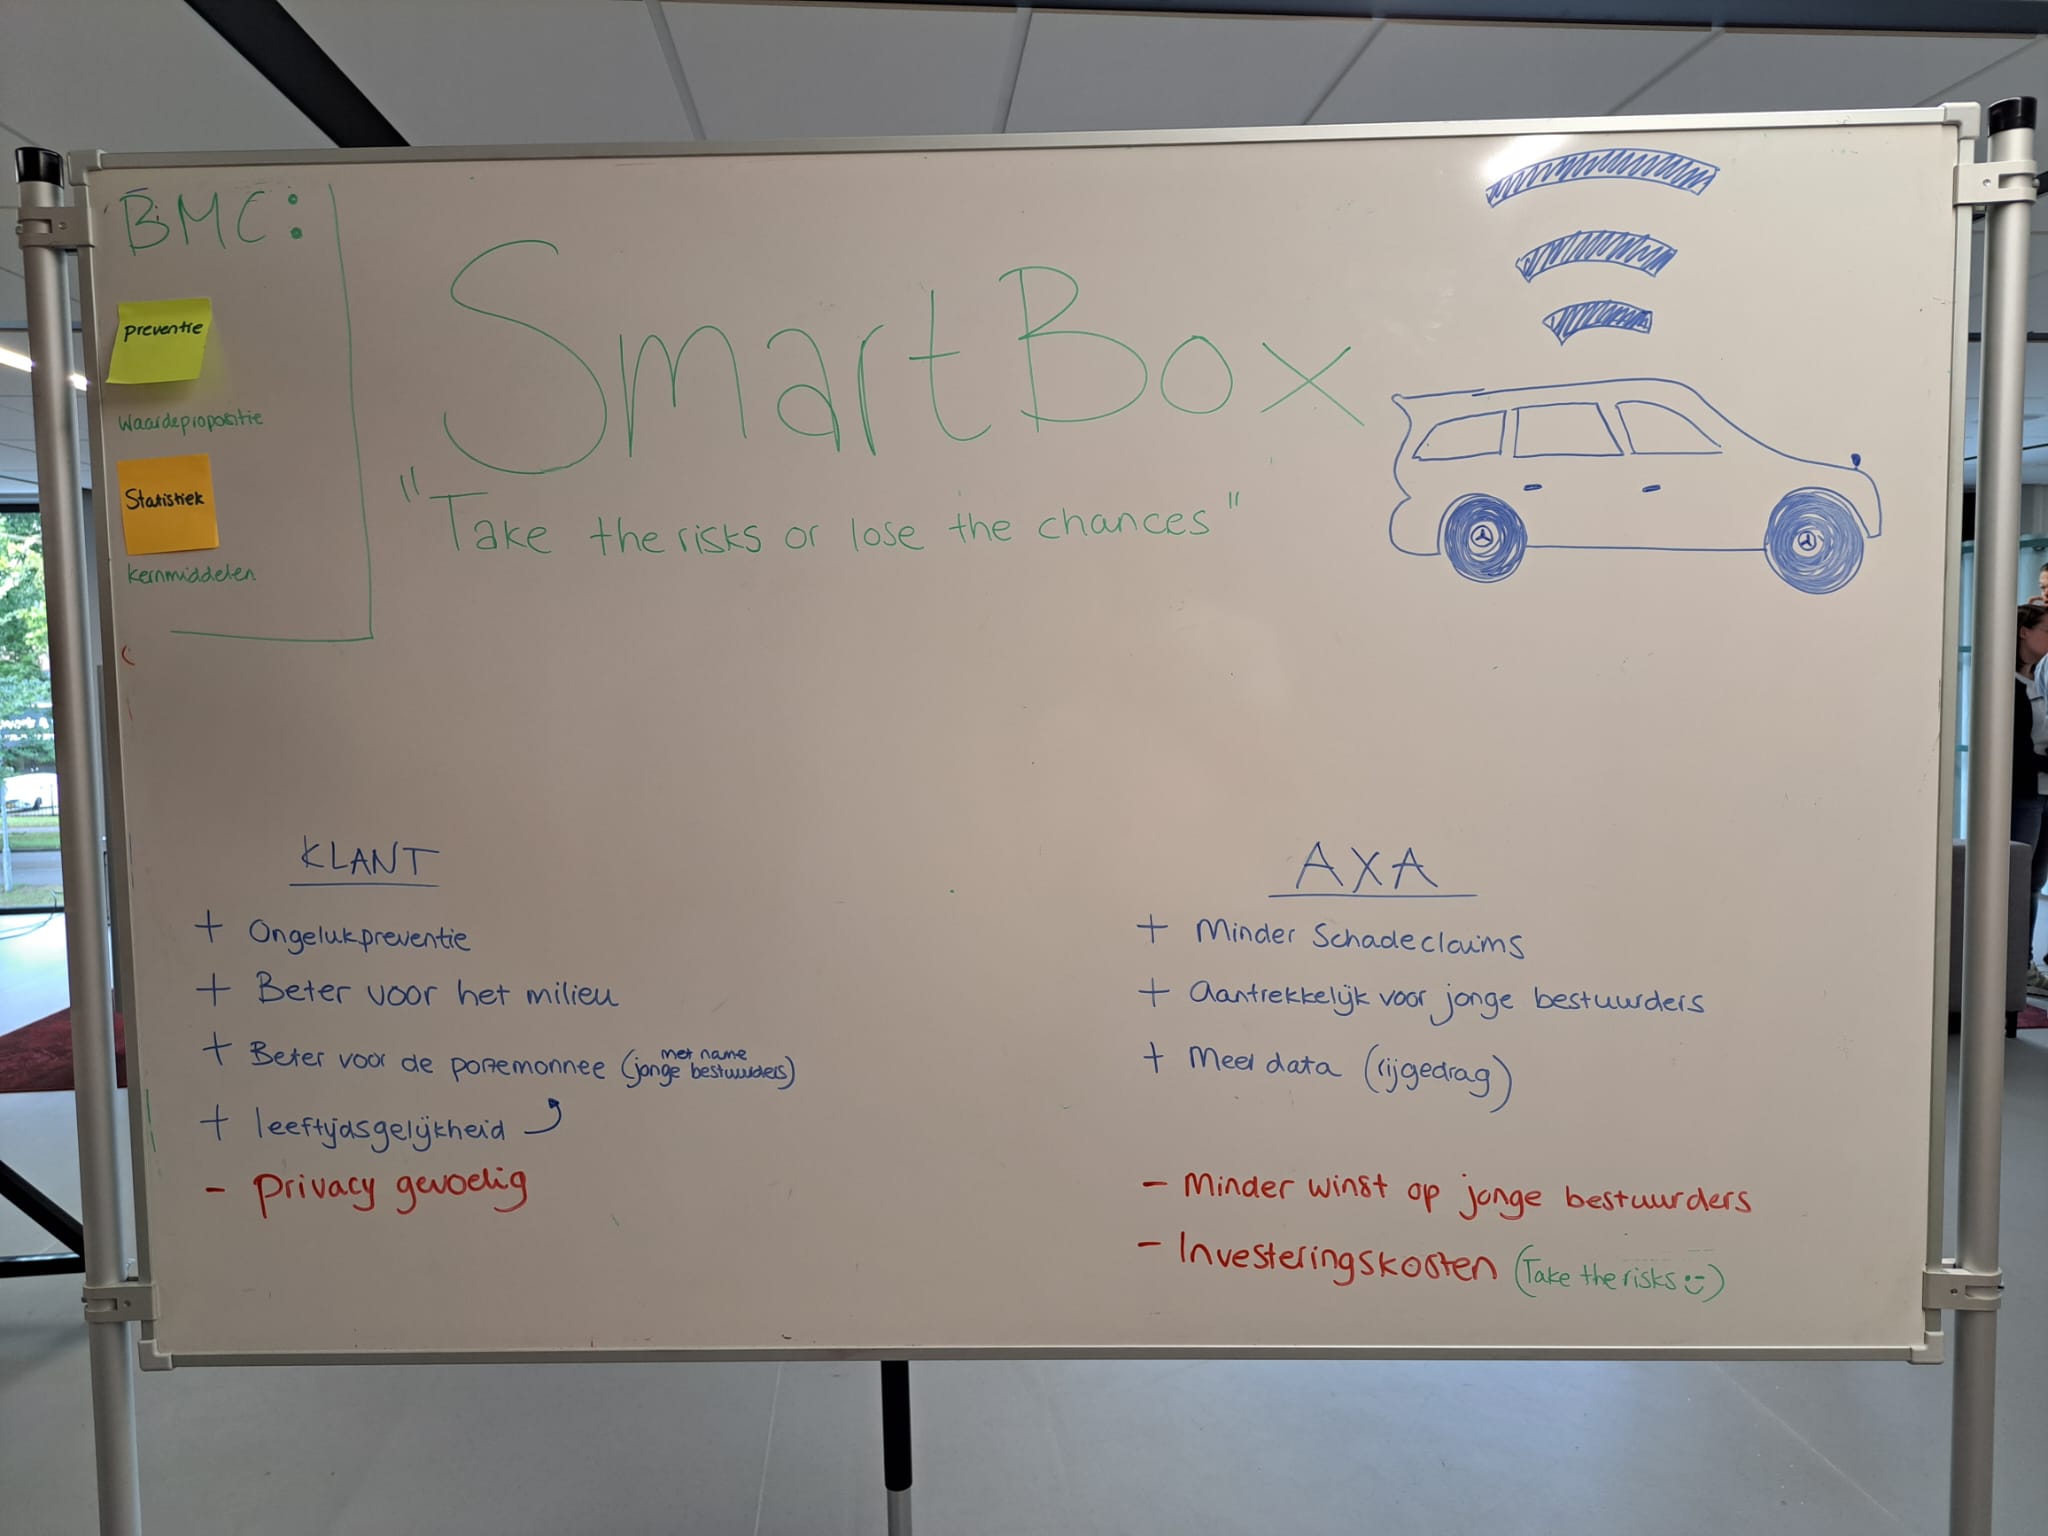 BMC:
preventie
Waardepropositie
Statistiek
kernmiddelen
SmartBox
"Take the risks or lose the chances"
KLANT
+ Ongelukpreventie
+ Beter voor het milieu
+ Beter voor de portemonnee (met name jonge bestuurders)
+ leeftijdsgelijkheid
- privacy gevoelig
AXA
+ Minder Schadeclaims
+ Aantrekkelijk voor jonge bestuurders
+ Meer data (rijgedrag)
- Minder winst op jonge bestuurders
- Investeringskosten (Take the risks :-))